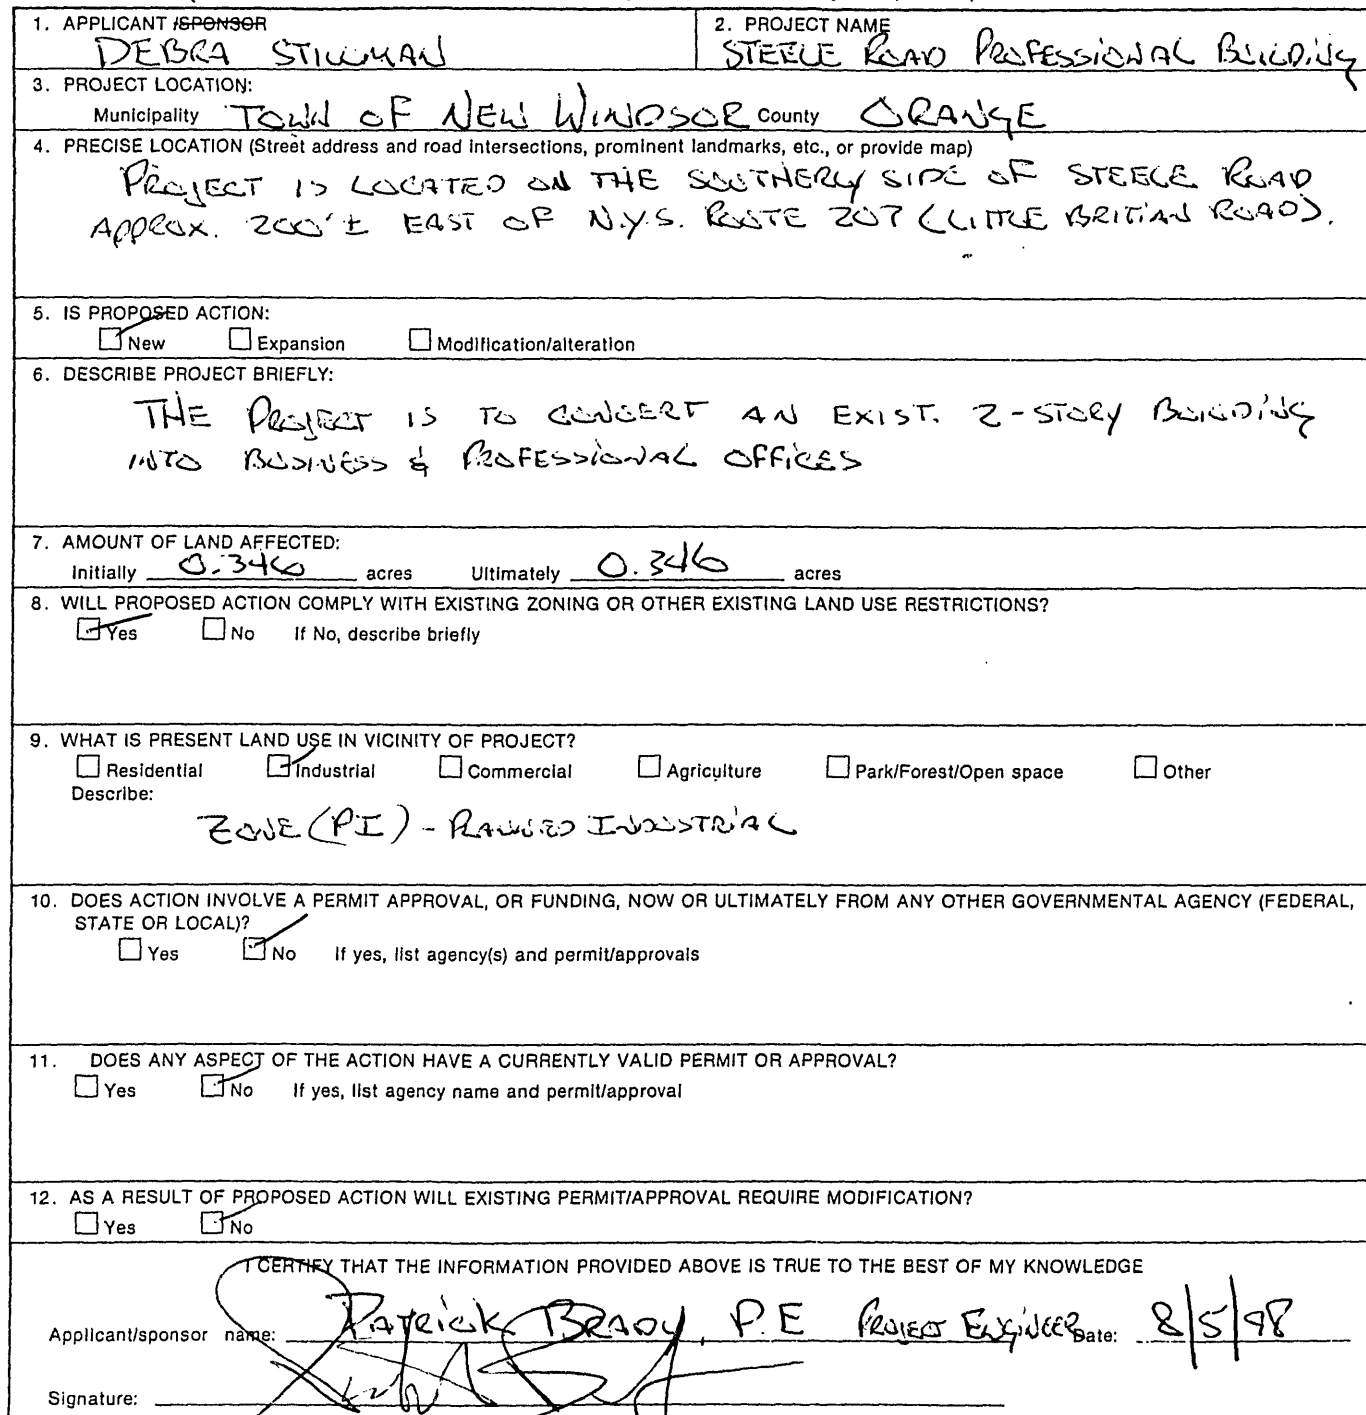 1. APPLICANT /SPONSOR
DEBRA STILLMAN
2. PROJECT NAME
STEELE ROAD PROFESSIONAL BUILDING
3. PROJECT LOCATION:
Municipality TOWN OF NEW WINDSOR County ORANGE
4. PRECISE LOCATION (Street address and road intersections, prominent landmarks, etc., or provide map)
PROJECT IS LOCATED ON THE SOUTHERLY SIDE OF STEELE ROAD
APPROX. 200'± EAST OF N.Y.S. ROUTE 207 (LITTLE BRITIAN ROAD).
5. IS PROPOSED ACTION:
New Expansion Modification/alteration
6. DESCRIBE PROJECT BRIEFLY:
THE PROJECT IS TO CONVERT AN EXIST. 2-STORY BUILDING
INTO BUSINESS & PROFESSIONAL OFFICES
7. AMOUNT OF LAND AFFECTED:
Initially 0.346 acres Ultimately 0.346 acres
8. WILL PROPOSED ACTION COMPLY WITH EXISTING ZONING OR OTHER EXISTING LAND USE RESTRICTIONS?
Yes No If No, describe briefly
9. WHAT IS PRESENT LAND USE IN VICINITY OF PROJECT?
Residential Industrial Commercial Agriculture Park/Forest/Open space Other
Describe:
ZONE (PI) - PLANNED INDUSTRIAL
10. DOES ACTION INVOLVE A PERMIT APPROVAL, OR FUNDING, NOW OR ULTIMATELY FROM ANY OTHER GOVERNMENTAL AGENCY (FEDERAL,
STATE OR LOCAL)?
Yes No If yes, list agency(s) and permit/approvals
11. DOES ANY ASPECT OF THE ACTION HAVE A CURRENTLY VALID PERMIT OR APPROVAL?
Yes No If yes, list agency name and permit/approval
12. AS A RESULT OF PROPOSED ACTION WILL EXISTING PERMIT/APPROVAL REQUIRE MODIFICATION?
Yes No
I CERTIFY THAT THE INFORMATION PROVIDED ABOVE IS TRUE TO THE BEST OF MY KNOWLEDGE
Applicant/sponsor name: PATRICK BRADY, P.E PROJECT ENGINEER Date: 8/5/98
Signature: